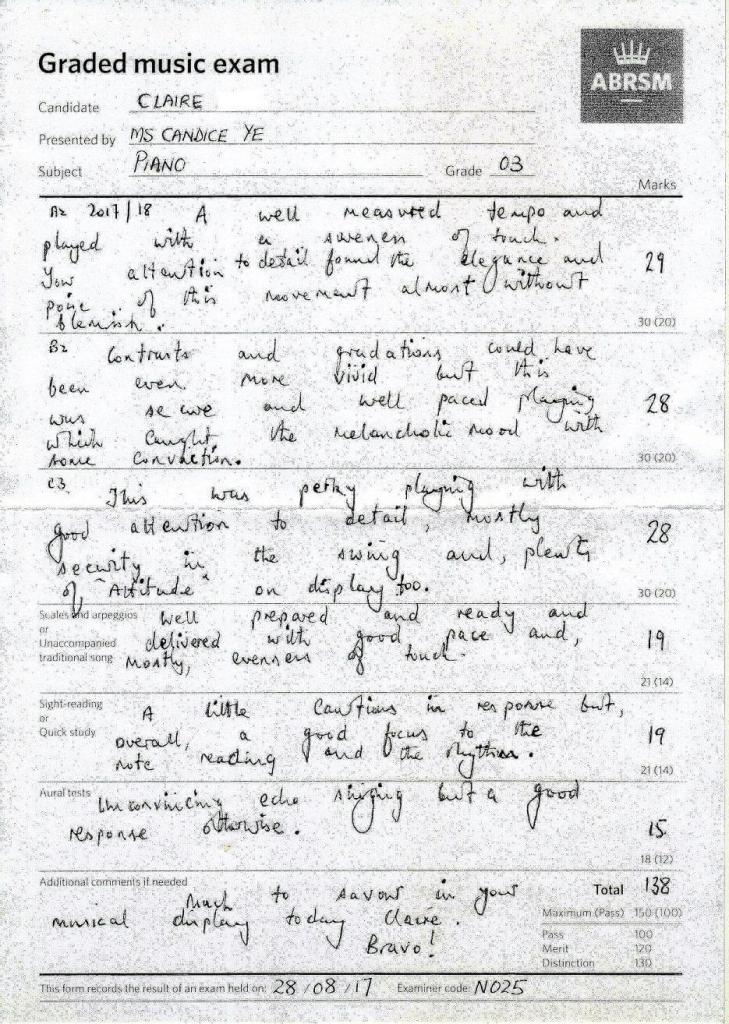 Graded music exam
ABRSM
Candidate CLAIRE
Presented by MS CANDICE YE
Subject PIANO Grade 03
Marks
A2 2017/18 A well measured tempo and
played with a sureness of touch.
Your attention to detail found the elegance and
poise of this movement almost without
blemish.
29
30 (20)
B2 Contrasts and gradations could have
been even more vivid but this
was secure and well paced playing
which caught the melancholic mood with
some conviction.
28
30 (20)
C3 This was perky playing with
good attention to detail, mostly
security in the swing and, plenty
of "Attitude" on display too.
28
30 (20)
Scales and arpeggios
or
Unaccompanied
traditional song
Well prepared and ready and
delivered with good pace and,
mostly, evenness of touch.
19
21 (14)
Sight-reading
or
Quick study
A little cautious in response but,
overall, a good focus to the
note reading and the rhythm.
19
21 (14)
Aural tests
Unconvincing echo singing but a good
response otherwise.
15
18 (12)
Additional comments if needed
Much to savour in your
musical display today Claire.
Bravo!
Total 138
Maximum (Pass) 150 (100)
Pass 100
Merit 120
Distinction 130
This form records the result of an exam held on: 28/08/17 Examiner code: N025